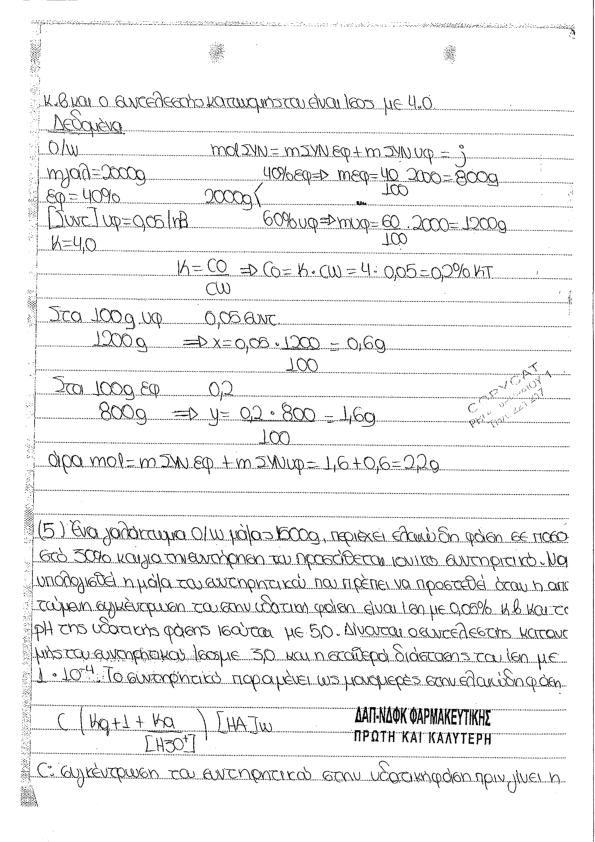 κ.β και ο συντελεστής κατανομής του είναι ίσος με 4.0.
Δεδομένα
O/W mολΣΥΝ = mΣΥΝ εφ + mΣΥΝ υφ = ;
mγαλ = 2000g 40% εφ => mεφ = 40/100 . 2000 = 800g
εφ = 40% 2000g
[Συντ] υφ = 0,05% κβ 60% υφ => mυφ = 60/100 . 2000 = 1200g
K = 4,0
K = CO/CW => Co = K . CW = 4 . 0,05 = 0,2% κτ
Στα 100g υφ 0,05 συντ.
1200g => x = 0,05 . 1200 / 100 = 0,6g
Στα 100g εφ 0,2
800g => y = 0,2 . 800 / 100 = 1,6g
COPYCAT
άρα mολ = mΣΥΝ εφ + mΣΥΝ υφ = 1,6 + 0,6 = 2,2g
(5) Ένα γαλάκτωμα O/W μάζας 1500g, περιέχει ελαιώδη φάση σε ποσο
στό 30% και για τη συντήρηση του προστίθεται ιονικό συντηρητικό. Να
υπολογισθεί η μάζα του συντηρητικού που πρέπει να προστεθεί όταν η απαι
τούμενη συγκέντρωση του στην υδατική φάση είναι ίση με 0,05% κ.β και το
pH της υδατικής φάσης ισούται με 5,0. Δίνονται ο συντελεστής κατανο
μής του συντηρητικού ίσος με 3,0 και η σταθερά διάστασης του ίση με
1 . 10⁻⁴. Το συντηρητικό παραμένει ως μονομερές στην ελαιώδη φάση.
C (Kφ + 1 + Ka/[H3O⁺]) [HA]w
ΔΑΠ-ΝΔΦΚ ΦΑΡΜΑΚΕΥΤΙΚΗΣ
ΠΡΩΤΗ ΚΑΙ ΚΑΛΥΤΕΡΗ
C: συγκέντρωση του συντηρητικού στην υδατική φάση πριν γίνει η